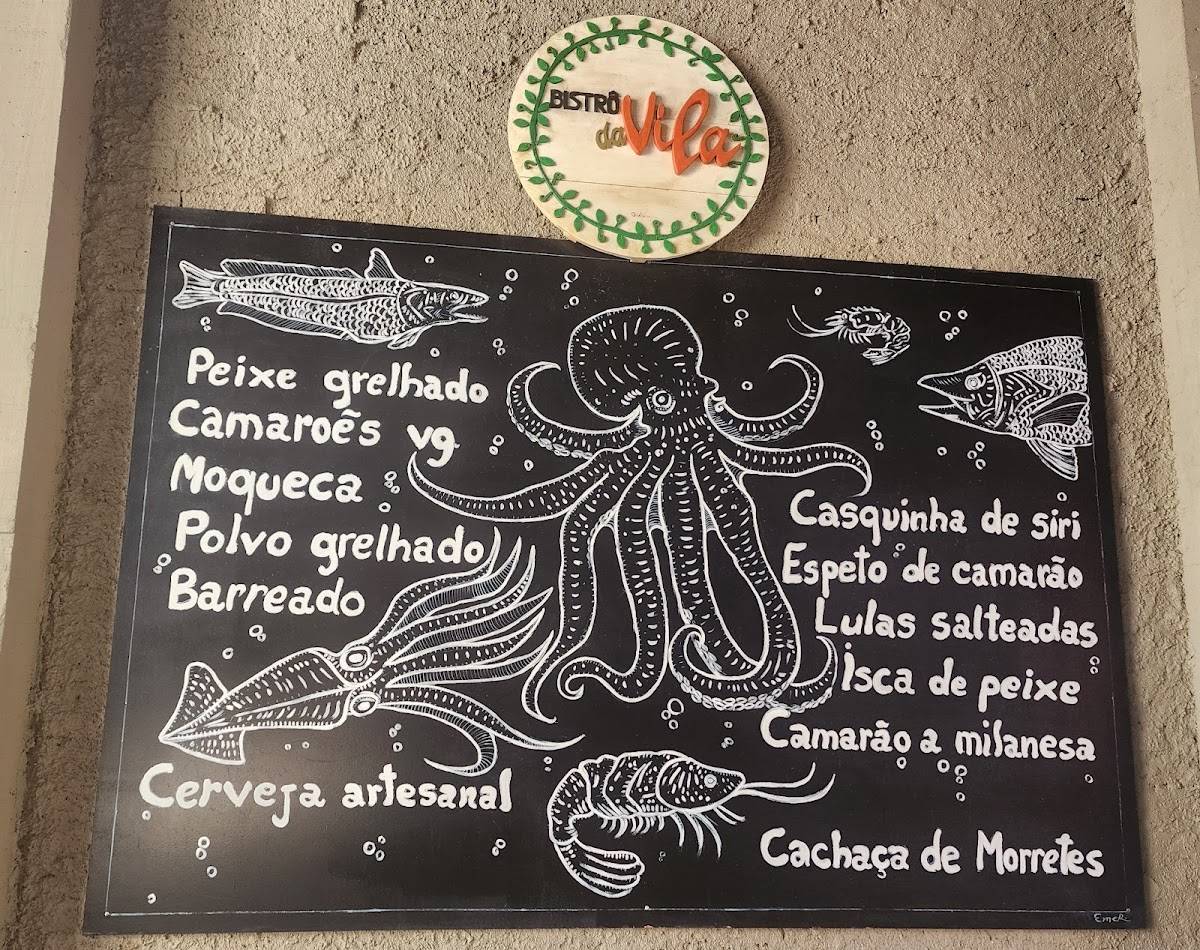 BISTRÔ
da Vila
Peixe grelhado
Camaroẽs vg
Moqueca
Polvo grelhado
Barreado
Cerveja artesanal
Casquinha de siri
Espeto de camarão
Lulas salteadas
Isca de peixe
Camarão a milanesa
Cachaça de Morretes